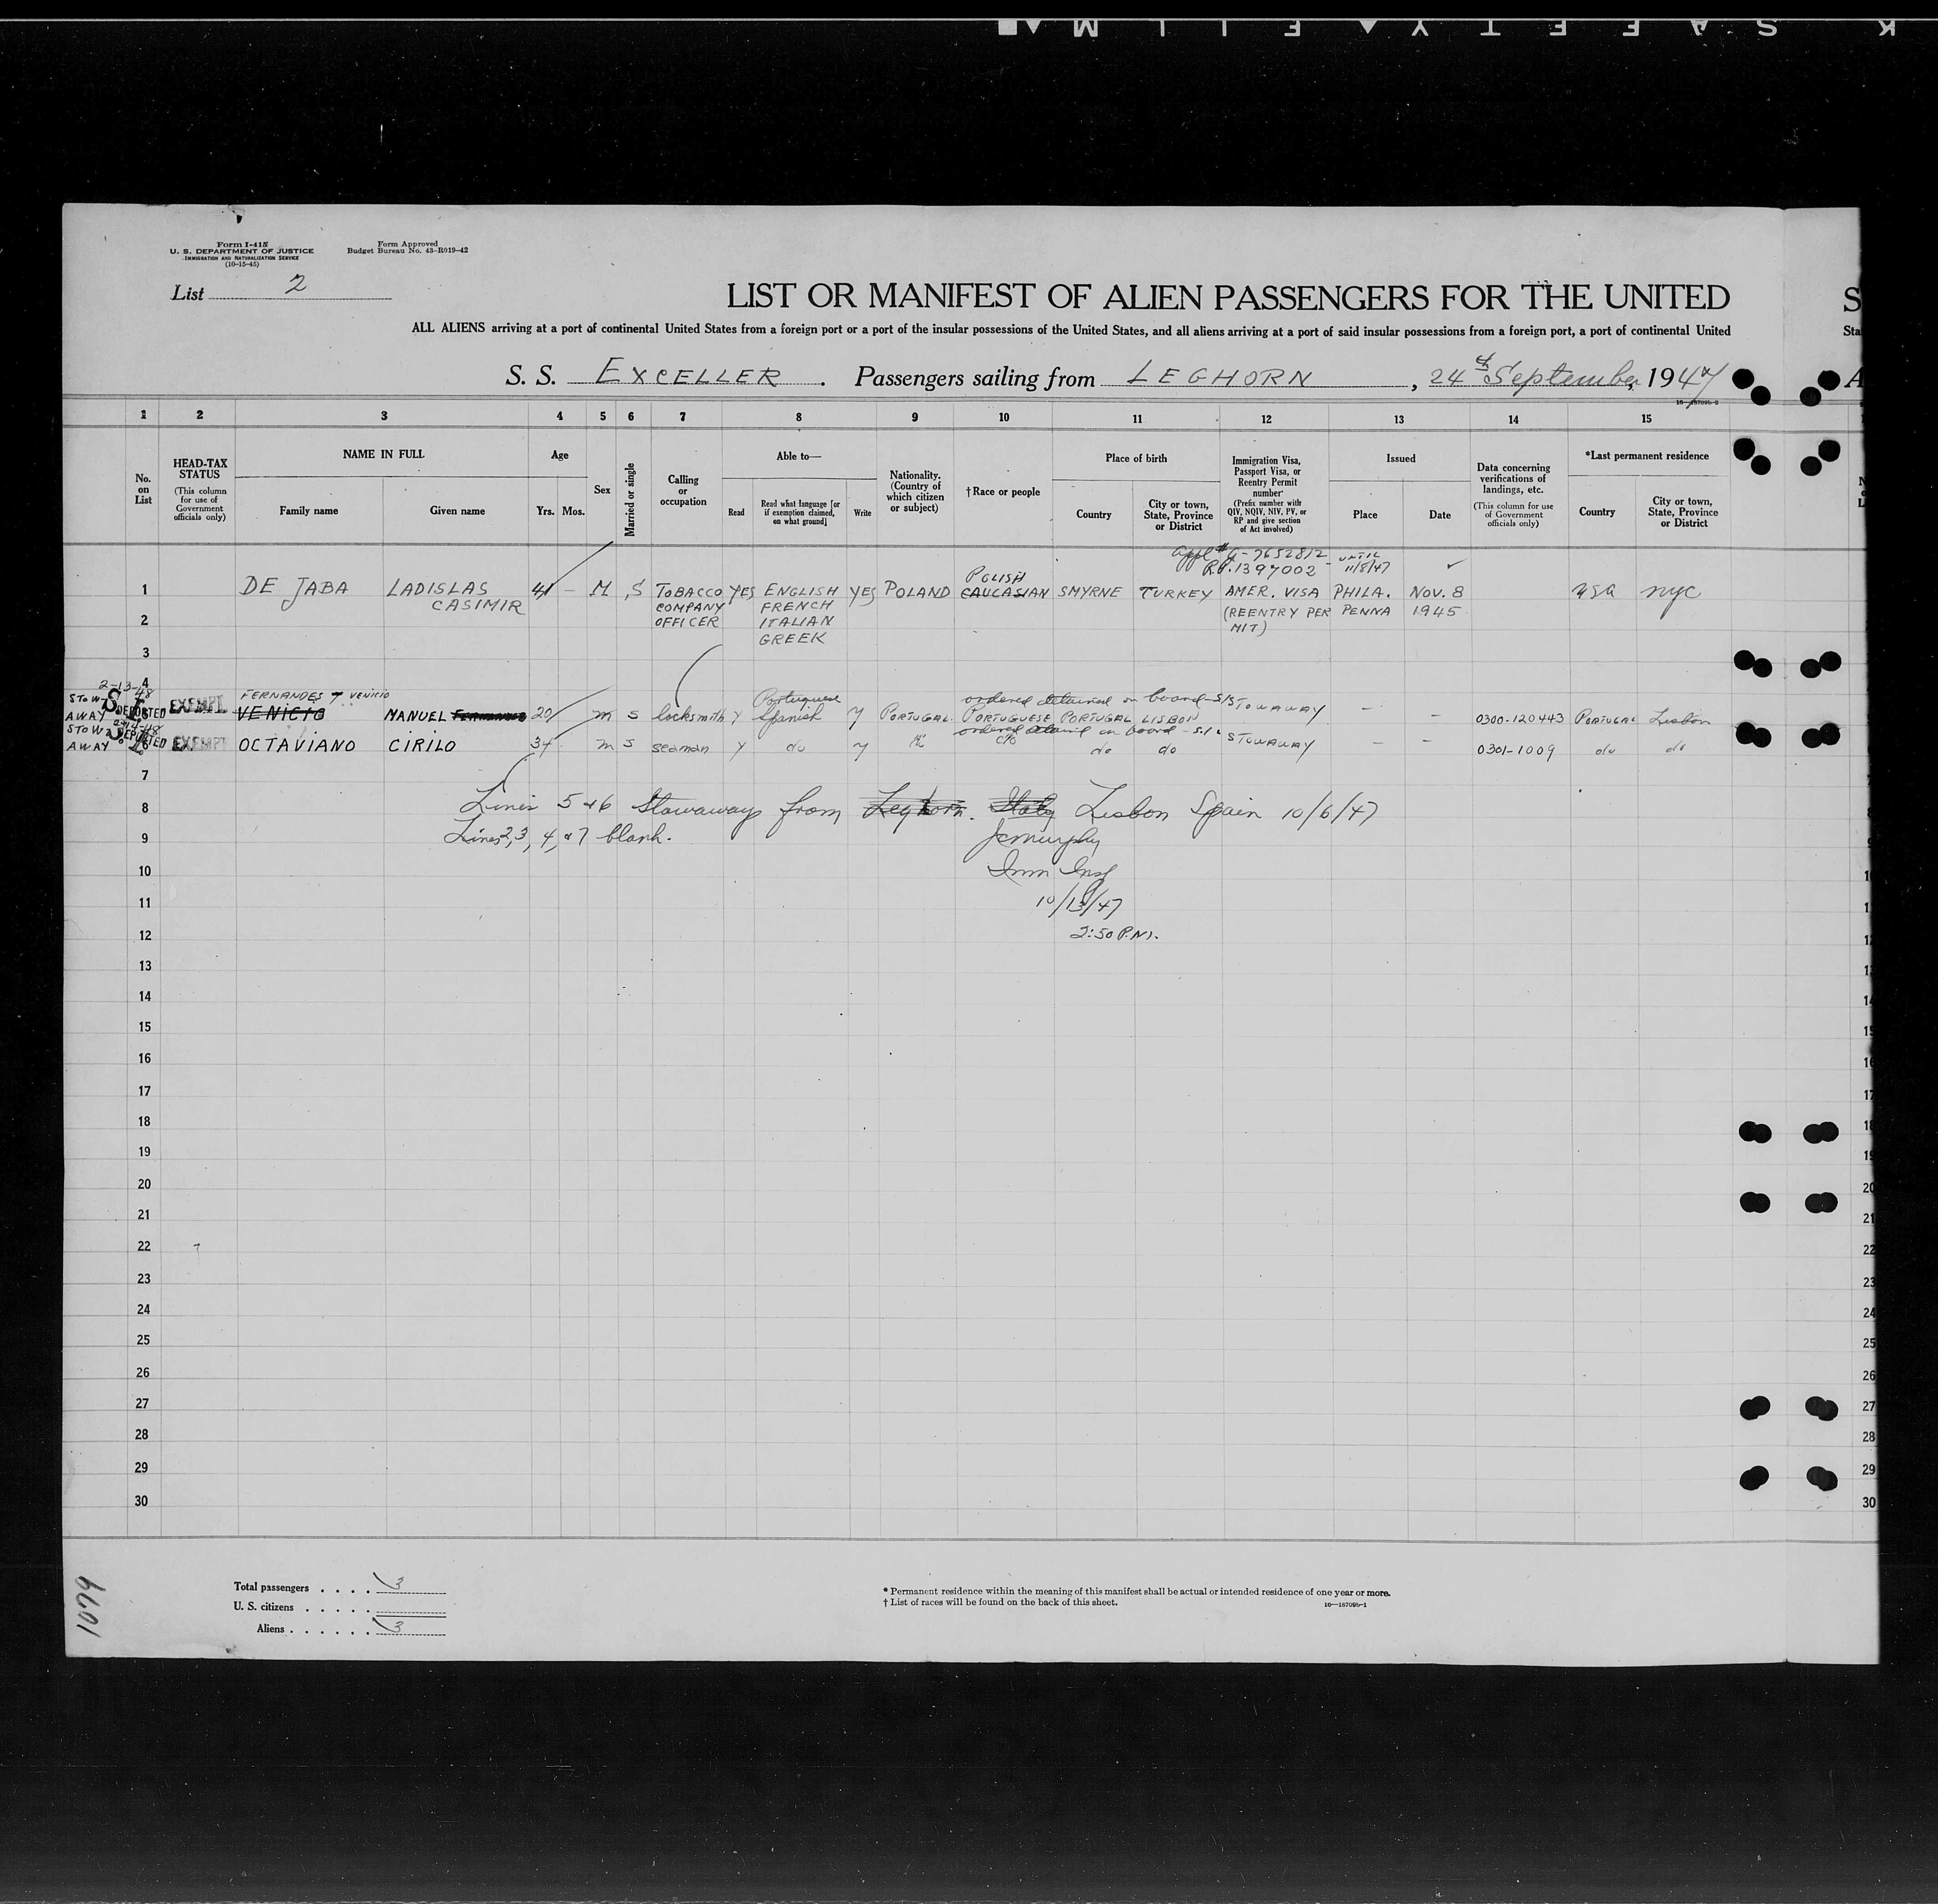 K SAFETY ▲ FILM ▲■
Form I-415
U. S. DEPARTMENT OF JUSTICE
IMMIGRATION AND NATURALIZATION SERVICE
(10-15-45)
Form Approved
Budget Bureau No. 43-R019-42
List 2
LIST OR MANIFEST OF ALIEN PASSENGERS FOR THE UNITED S
ALL ALIENS arriving at a port of continental United States from a foreign port or a port of the insular possessions of the United States, and all aliens arriving at a port of said insular possessions from a foreign port, a port of continental United Sta
S. S. EXCELLER. Passengers sailing from LEGHORN, 24 September, 1947 A
1 2 3 4 5 6 7 8 9 10 11 12 13 14 15
No. on List
HEAD-TAX STATUS
(This column for use of Government officials only)
NAME IN FULL
Family name
Given name
Age
Yrs. Mos.
Sex
Married or single
Calling or occupation
Able to—
Read
Read what language [or if exemption claimed, on what ground]
Write
Nationality. (Country of which citizen or subject)
†Race or people
Place of birth
Country
City or town, State, Province or District
Immigration Visa, Passport Visa, or Reentry Permit number
(Prefix number with QIV, NQIV, NIV, PV, or RP and give section of Act involved)
Issued
Place
Date
Data concerning verifications of landings, etc.
(This column for use of Government officials only)
*Last permanent residence
Country
City or town, State, Province or District
appl # A-7652812 UNTIL
R.P. 1397002 - 11/8/47 ✓
POLISH
1 DE JABA LADISLAS 41 - M S TOBACCO YES ENGLISH YES POLAND CAUCASIAN SMYRNE TURKEY AMER. VISA PHILA. NOV. 8 USA NYC
CASIMIR COMPANY FRENCH (REENTRY PER PENNA 1945
2 OFFICER ITALIAN MIT)
GREEK
3
4
2-13-48
FERNANDES VENICIO Portuguese ordered detained on board - S/S
STOW AWAY S.I. DEPORTED 5 EXEMPT VENICIO MANUEL FERNANDES 20 m s locksmith y Spanish y PORTUGAL PORTUGUESE PORTUGAL LISBON STOWAWAY - - 0300-120443 PORTUGAL Lisbon
ordered detained on board - S.I.
STOW AWAY S.I. DEPORTED 6 EXEMPT OCTAVIANO CIRILO 34 m s seaman y do y do do do STOWAWAY - - 0301-1009 do do
7
8 Lines 5 + 6 Stowaways from Leghorn. Italy Lisbon Spain 10/6/47
9 Lines 2, 3, 4, & 7 blank. JCMurphy
10 Imm Insp
11 10/13/47
12 2:50 P.M.
13
14
15
16
17
18
19
20
21
22
23
24
25
26
27
28
29
30
Total passengers . . . . 3
U. S. citizens . . . . .
Aliens . . . . . . 3
* Permanent residence within the meaning of this manifest shall be actual or intended residence of one year or more.
† List of races will be found on the back of this sheet.
16—18709b-1
1099